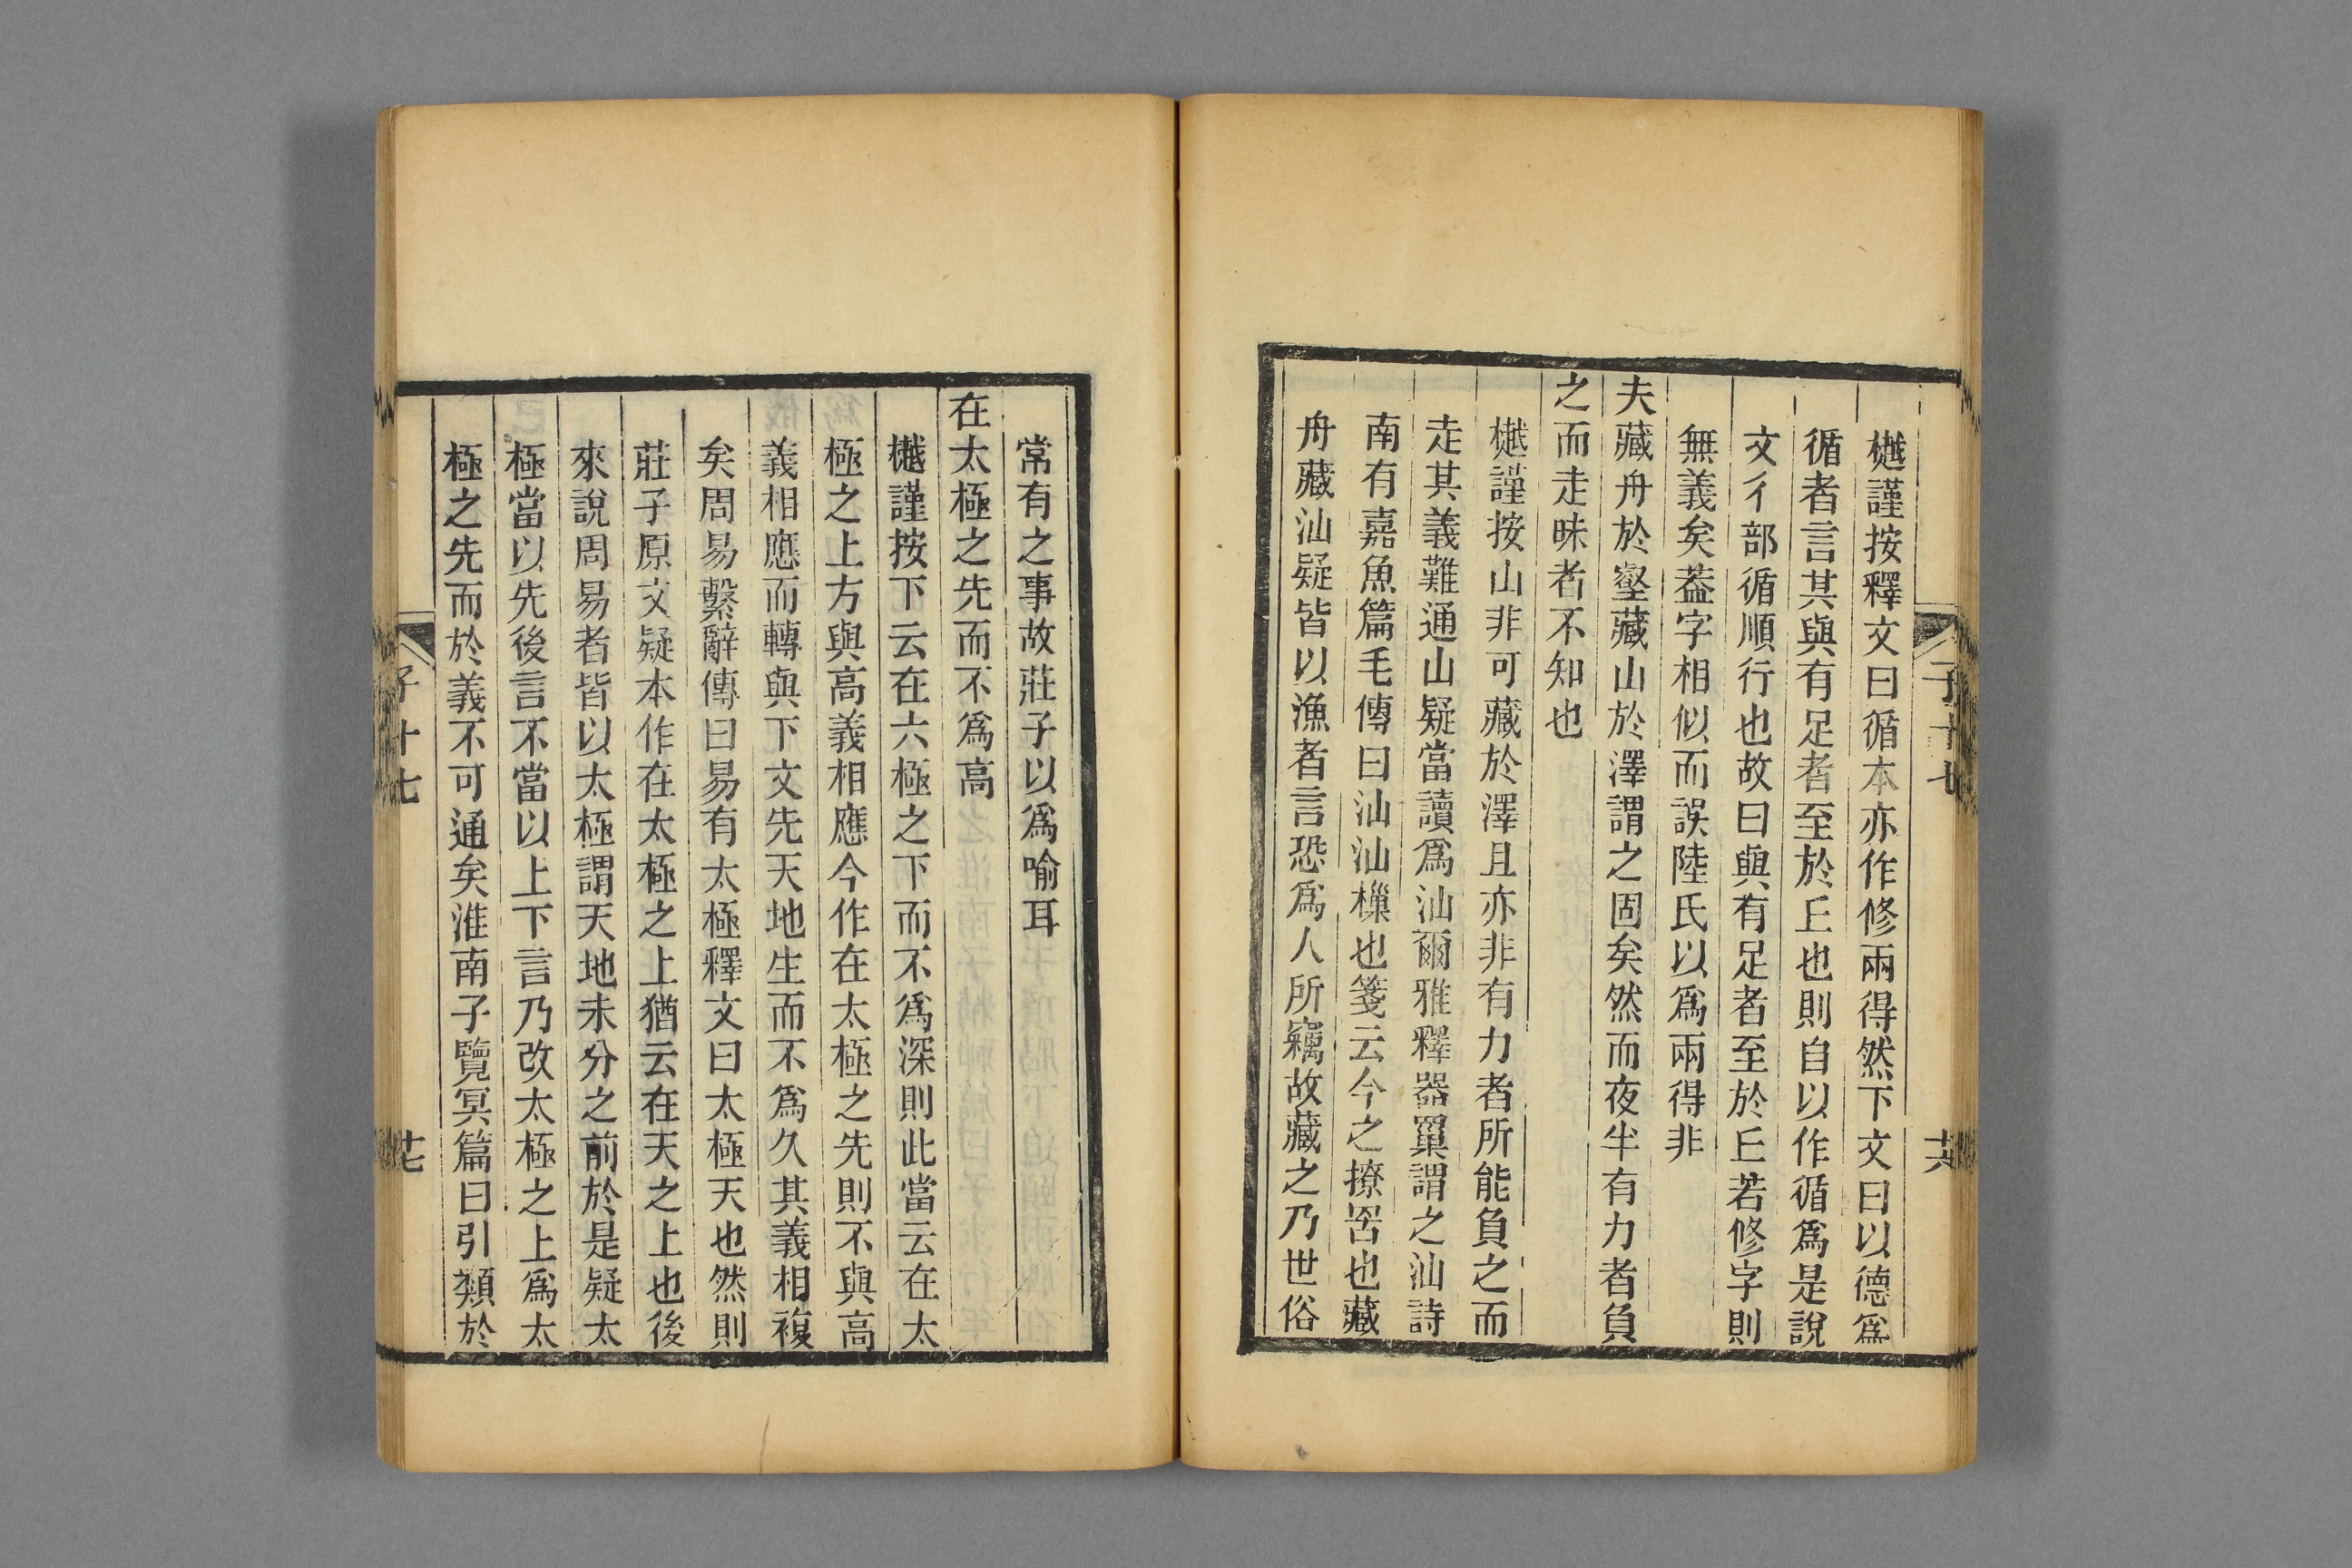 樾謹按釋文曰循本亦作修兩得然下文曰以德爲
循者言其與有足者至於𠀉也則自以作循爲是說
文彳部循順行也故曰與有足者至於𠀉若修字則
無義矣葢字相似而誤陸氏以爲兩得非
夫藏舟於壑藏山於澤謂之固矣然而夜半有力者負
之而走昧者不知也
樾謹按山非可藏於澤且亦非有力者所能負之而
走其義難通山疑當讀爲汕爾雅釋器罺謂之汕詩
南有嘉魚篇毛傳曰汕汕樔也箋云今之撩罟也藏
舟藏汕疑皆以漁者言恐爲人所竊故藏之乃世俗
子十七
廿六
常有之事故莊子以爲喻耳
在太極之先而不爲高
樾謹按下云在六極之下而不爲深則此當云在太
極之上方與高義相應今作在太極之先則不與高
義相應而轉與下文先天地生而不爲久其義相複
矣周易繫辭傳曰易有太極釋文曰太極天也然則
莊子原文疑本作在太極之上猶云在天之上也後
來說周易者皆以太極謂天地未分之前於是疑太
極當以先後言不當以上下言乃改太極之上爲太
極之先而於義不可通矣淮南子覽冥篇曰引類於
子十七
廿七